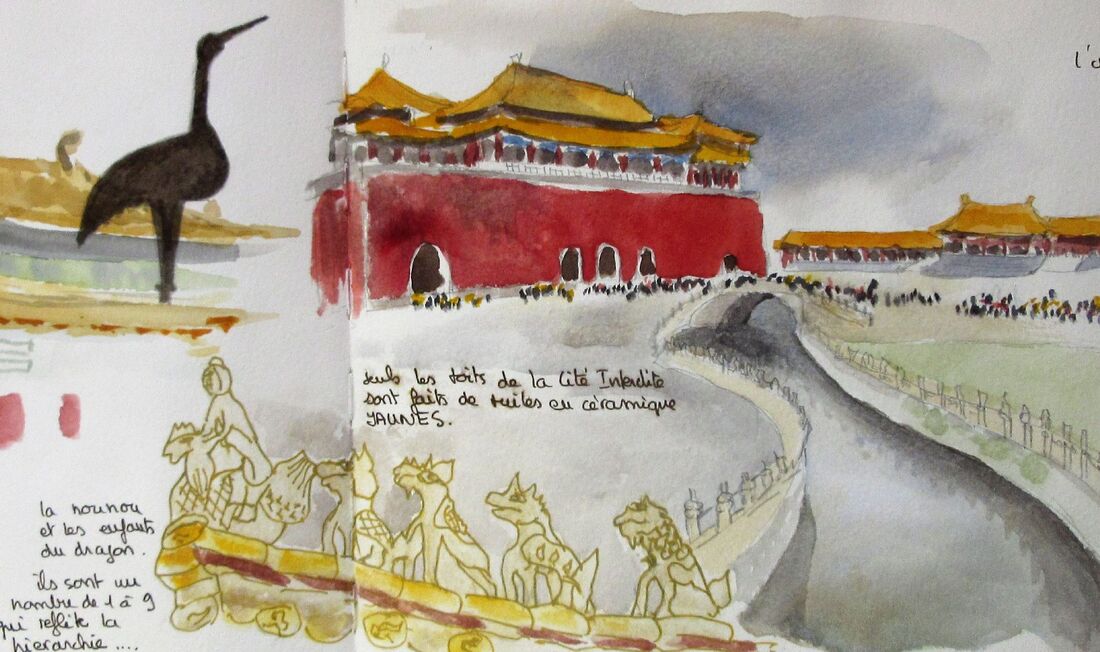 seuls les toits de la Cité Interdite
sont faits de tuiles en céramique
JAUNES.
la nounou
et les enfants
du dragon.
ils sont un
nombre de 1 à 9
qui reflète la
hierarchie ....